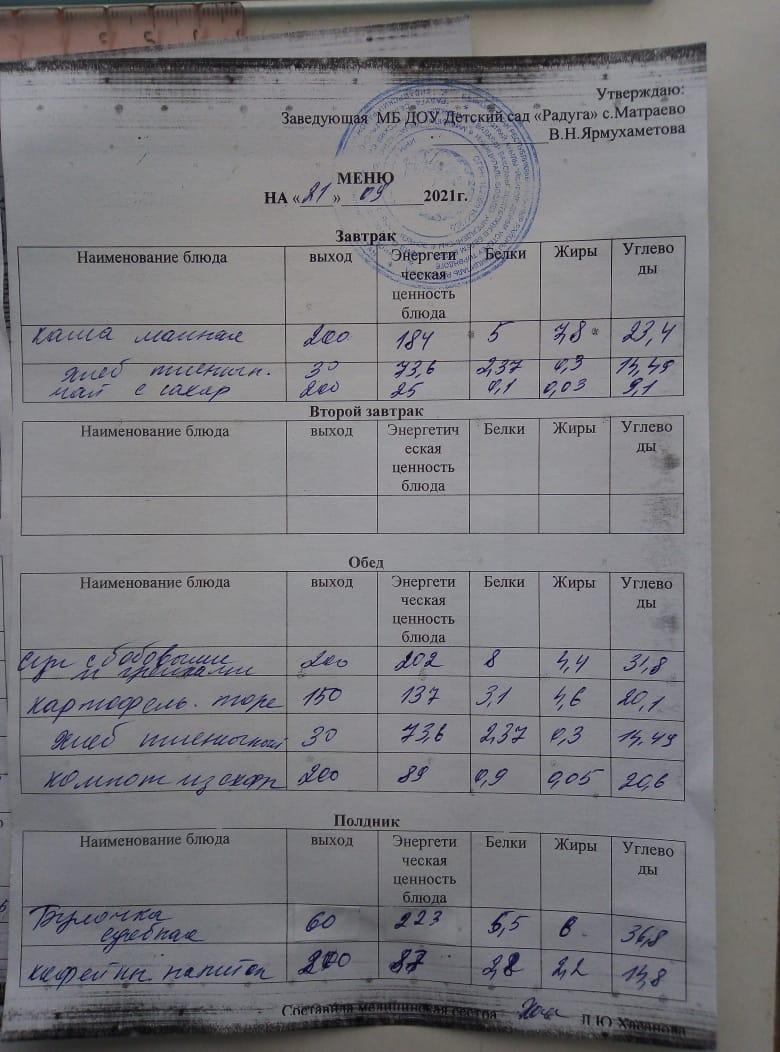 Утверждаю:
Заведующая МБ ДОУ Детский сад «Радуга» с.Матраево
В.Н.Ярмухаметова
МЕНЮ
НА «21» 09 2021г.
Завтрак
Наименование блюда выход Энергети Белки Жиры Углево
ческая ды
ценность
блюда
каша манная 200 184 5 7,8 23,4
хлеб пшеничн. 30 73,6 2,37 0,3 14,49
чай с сахар 200 25 0,1 0,03 9,1
Второй завтрак
Наименование блюда выход Энергетич Белки Жиры Углево
еская ды
ценность
блюда
Обед
Наименование блюда выход Энергети Белки Жиры Углево
ческая ды
ценность
блюда
суп с бобовыми
и гренками 200 202 8 4,4 31,8
картофель. пюре 150 137 3,1 4,6 20,1
хлеб пшеничный 30 73,6 2,37 0,3 14,49
компот из сухфр 200 89 0,9 0,05 20,6
Полдник
Наименование блюда выход Энергети Белки Жиры Углево
ческая ды
ценность
блюда
Булочка
сдобная 60 223 5,5 6 36,8
кофейн. напиток 200 87 2,8 2,2 14,8
Составила медицинская сестра Л.Ю Хасанова